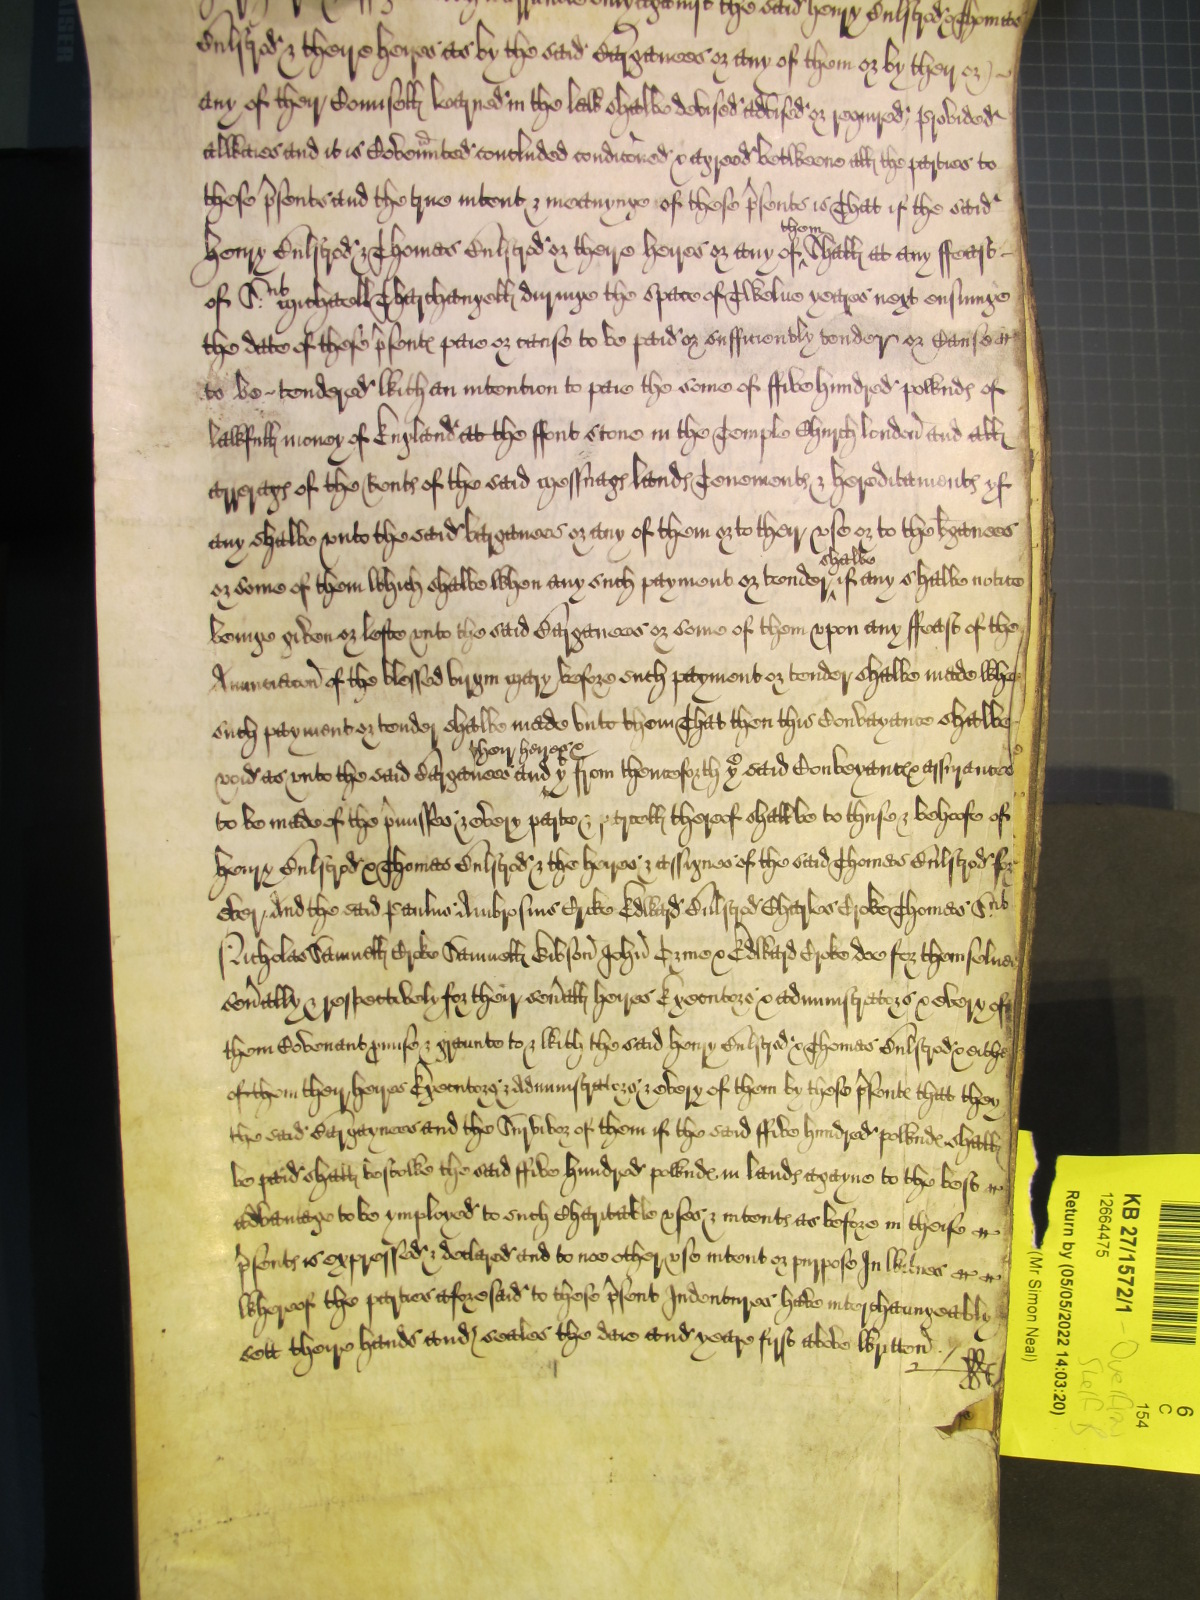 the said henry Bulstrod & Thomas
Bulstrod & theire heires as by the said Barganees or any of them or by their or
any of their Counsell learned in the law shalbe devised advised or required, provided
allwaies and it is Covennted concluded condiconed & agreed betweene all the parties to
these psents and the true intent & meanynge of these psents is That if the said
henry Bulstrod & Thomas Bulstrod or theire heires or any of them shall at any ffeast
of St Michaell Tharchangell duringe the space of Twelve yeares next ensuinge
the date of these psents paie or cause to be paid or sufficiently tender or Cause
to be tendered with an intention to paie the some of ffive hundred pownds of
lawfull money of England at the ffont stone in the Temple Church london and all
arrerags of the Rents of the said messuags lands Tenements & hereditaments yf
any shalbe unto the said barganees or any of them or to their use or to the barganees
or some of them which shalbe when any such payment or tender shalbe if any shalbe notice
beinge given or lefte unto the said Barganees or some of them upon any ffeast of the
Anunciacon of the blessed virgin mary before such payment or tender shalbe made whe
such payment or tender shalbe made unto them That then this Convayance shalbe
void as unto the said Barganees their heires & and yt from thenceforth ye said Conveyance & assurances
to be made of the pmisses & every parte & parcell thereof shall be to thuse & behoofe of
henry Bulstrod & Thomas Bulstrod & the heires & assignes of the said Thomas Bulstrod for
ever, And the said Paulus Ambrosius Croke Edward Bulstrod Charles Croke Thomas
Nicholas Samuell Croke Samuell Gibson John & Edward Croke doe for themselves
sevally & respectively for their sevall heires Executors & administrators & every of
them Covenant pmise & graunte to & with the said henry Bulstrod & Thomas Bulstrod & eithe
of them their heires Executors & Administrators & every of them by these psents that they
the said Bargaynees and the Survivor of them if the said ffive hundred pownds shall
be paid shall bestowe the said ffive hundred pownds in lands agayne to the best
advantage to be ymployed to such Charitable uses & intents as before in theise
psents is expressed & declared and to noe other use intent or purpose In witnes
whereof the parties aforesaid to these psent Indentures have interchaungeably
sett theire hands and seales the daie and yeare first above written
KB 27/1572/1
12664475
Return by (05/05/2022 14:03:20)
(Mr Simon Neal)
6
C
154